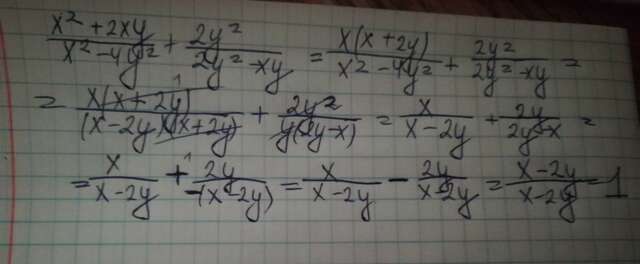 (x² + 2xy)/(x² - 4y²) + 2y²/(2y² - xy) = x(x + 2y)/(x² - 4y²) + 2y²/(2y² - xy) =
= x(x + 2y)/((x - 2y)(x + 2y)) + 2y²/(y(2y - x)) = x/(x - 2y) + 2y/(2y - x) =
= x/(x - 2y) + 2y/(-(x - 2y)) = x/(x - 2y) - 2y/(x - 2y) = (x - 2y)/(x - 2y) = 1